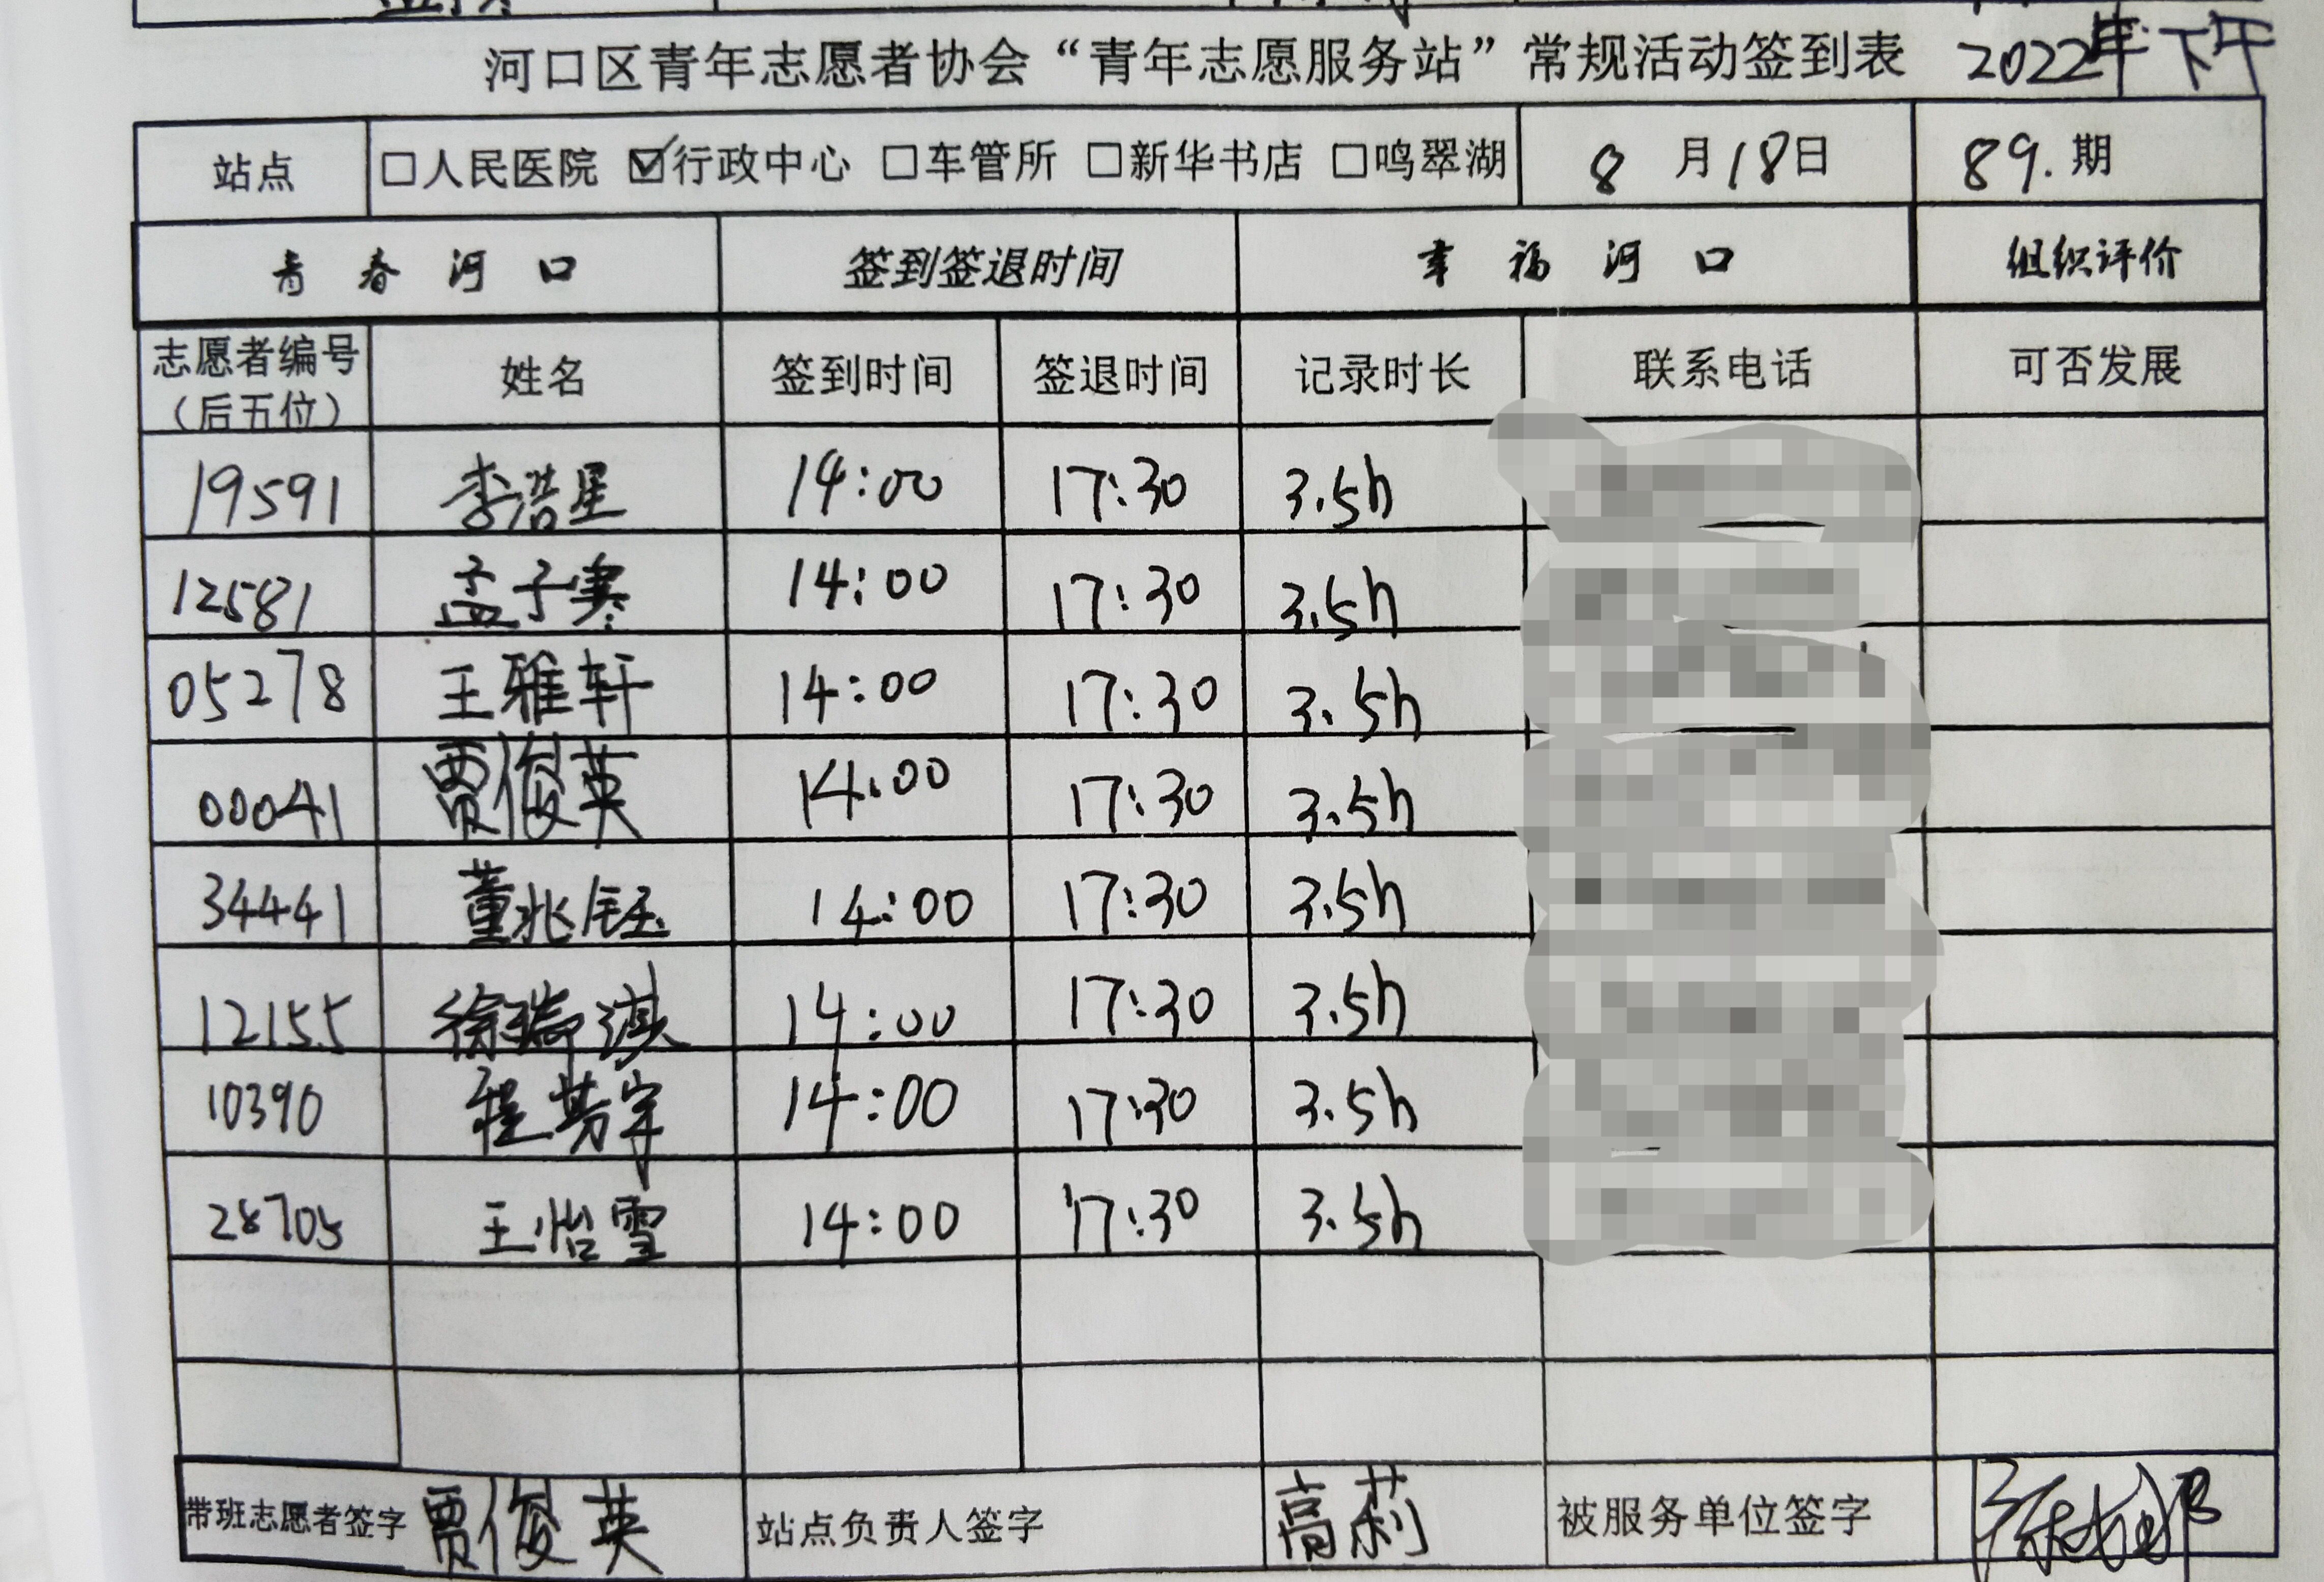 河口区青年志愿者协会“青年志愿服务站”常规活动签到表 2022年下午
站点 □人民医院 ☑行政中心 □车管所 □新华书店 □鸣翠湖 8月18日 89.期
青春河口 签到签退时间 幸福河口 组织评价
志愿者编号（后五位） 姓名 签到时间 签退时间 记录时长 联系电话 可否发展
19591 李浩星 14:00 17:30 3.5h
12581 孟子寒 14:00 17:30 3.5h
05278 王雅轩 14:00 17:30 3.5h
00041 贾俊英 14:00 17:30 3.5h
34441 董兆钰 14:00 17:30 3.5h
12155 徐瑞淇 14:00 17:30 3.5h
10390 程 宇 14:00 17:30 3.5h
28705 王怡雪 14:00 17:30 3.5h
带班志愿者签字 贾俊英 站点负责人签字 高莉 被服务单位签字